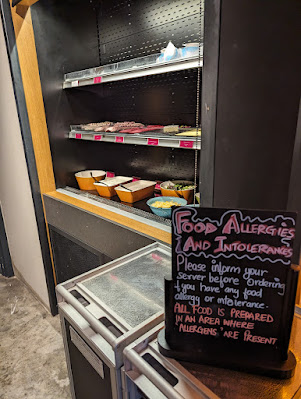 FOOD ALLERGIES
AND INTOLERANCES
Please inform your
server before ordering
if you have any food
allergy or intolerance.
ALL FOOD IS PREPARED
IN AN AREA WHERE
'ALLERGENS' ARE PRESENT